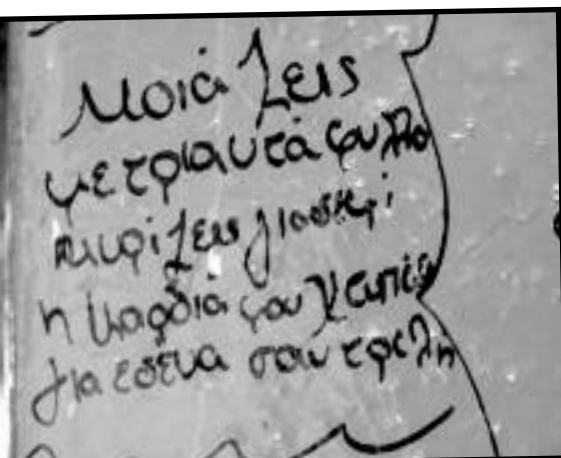 Μοιάζεις
με τριαντάφυλλο
μυρίζεις γιασεμί
η καρδιά μου
για εσενα σαν τρελη